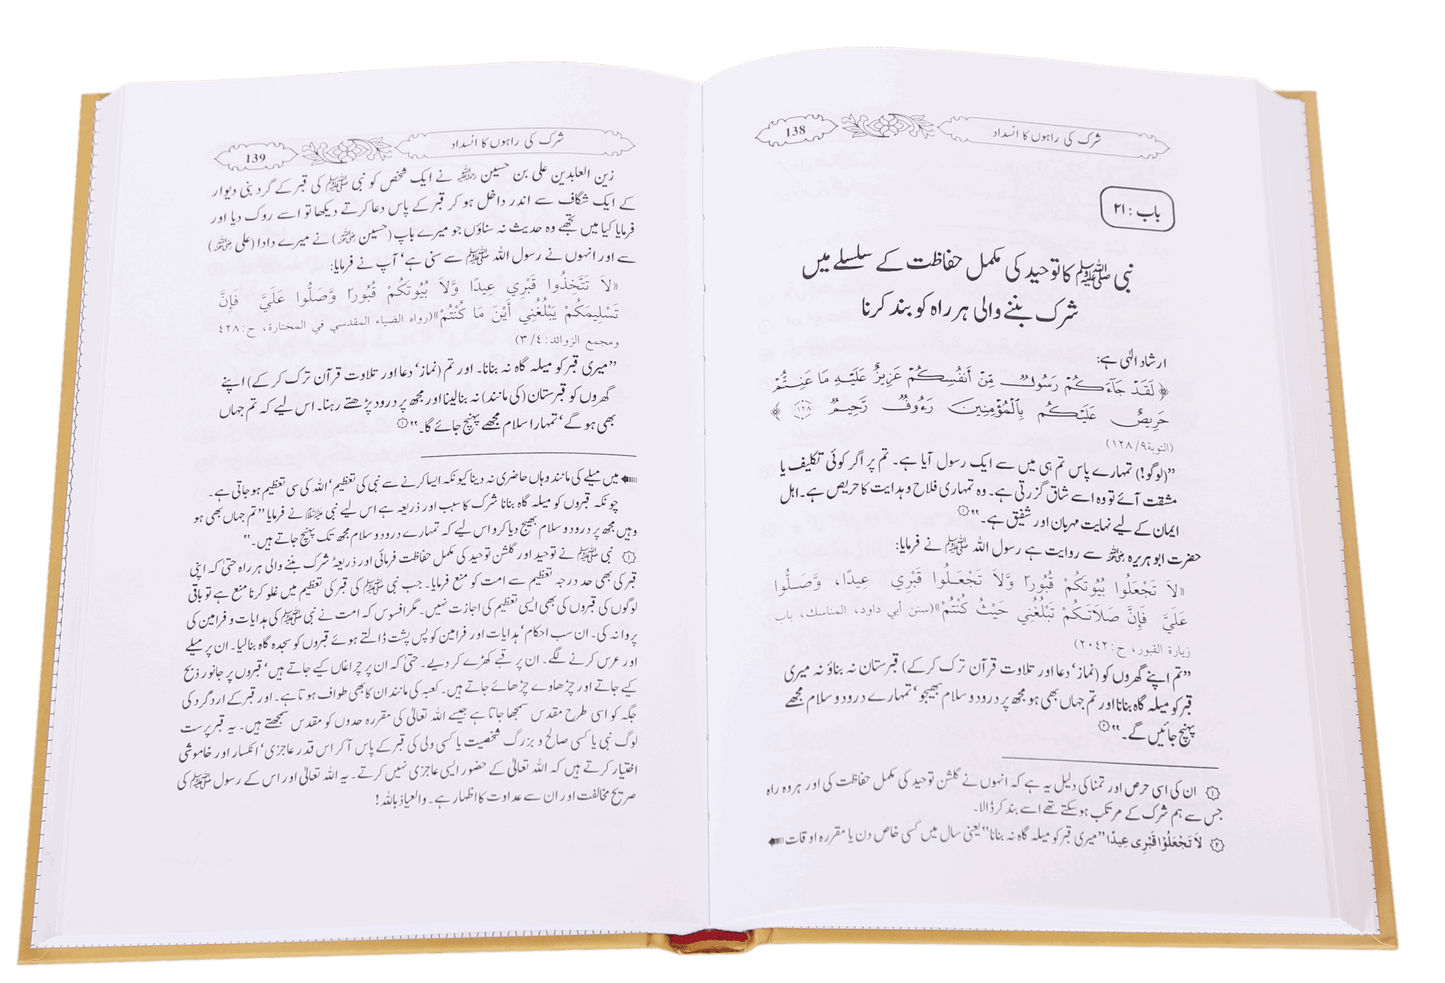 138
شرک کی راہوں کا انسداد
باب : ۲۱
نبی ﷺ کا توحید کی مکمل حفاظت کے سلسلے میں
شرک بننے والی ہر راہ کو بند کرنا
ارشاد الٰہی ہے:
﴿ لَقَدْ جَآءَكُمْ رَسُولٌ مِّنْ أَنفُسِكُمْ عَزِيزٌ عَلَيْهِ مَا عَنِتُّمْ
حَرِيصٌ عَلَيْكُم بِالْمُؤْمِنِينَ رَءُوفٌ رَّحِيمٌ ﴿١٢٨﴾ ﴾
(التوبة٩/١٢٨)
”(لوگو!) تمہارے پاس تم ہی میں سے ایک رسول آیا ہے۔ تم پر اگر کوئی تکلیف یا
مشقت آئے تو وہ اسے شاق گزرتی ہے۔ وہ تمہاری فلاح و ہدایت کا حریص ہے۔ اہل
ایمان کے لیے نہایت مہربان اور شفیق ہے۔“ ①
حضرت ابو ہریرہ رضی اللہ عنہ سے روایت ہے رسول اللہ ﷺ نے فرمایا:
«لَا تَجْعَلُوا بُيُوتَكُمْ قُبُورًا وَّلَا تَجْعَلُوا قَبْرِي عِيدًا، وَّصَلُّوا
عَلَيَّ فَإِنَّ صَلَاتَكُمْ تَبْلُغُنِي حَيْثُ كُنْتُمْ»(سنن أبي داود، المناسك، باب
زيارة القبور، ح:٢٠٤٢)
”تم اپنے گھروں کو (نماز‘ دعا اور تلاوت قرآن ترک کرکے) قبرستان نہ بناؤ نہ میری
قبر کو میلہ گاہ بنانا اور تم جہاں بھی ہو مجھ پر درود و سلام بھیجو‘ تمہارے درود و سلام مجھے
پہنچ جائیں گے۔“ ②
① ان کی اسی حرص اور تمنا کی دلیل یہ ہے کہ انہوں نے گلشن توحید کی مکمل حفاظت کی اور ہر وہ راہ
جس سے ہم شرک کے مرتکب ہوسکتے تھے اسے بند کر ڈالا۔
② لَا تَجْعَلُوْا قَبْرِی عِیدًا ”میری قبر کو میلہ گاہ نہ بنانا“ یعنی سال میں کسی خاص دن یا مقررہ اوقات
139
شرک کی راہوں کا انسداد
زین العابدین علی بن حسین رضی اللہ عنہ نے ایک شخص کو نبی ﷺ کی قبر کے گرد بنی دیوار
کے ایک شگاف سے اندر داخل ہو کر قبر کے پاس دعا کرتے دیکھا تو اسے روک دیا اور
فرمایا کیا میں تجھے وہ حدیث نہ سناؤں جو میرے باپ (حسین رضی اللہ عنہ) نے میرے دادا (علی رضی اللہ عنہ)
سے اور انہوں نے رسول اللہ ﷺ سے سنی ہے‘ آپ نے فرمایا:
«لَا تَتَّخِذُوا قَبْرِي عِيدًا وَّلَا بُيُوتَكُمْ قُبُورًا وَّصَلُّوا عَلَيَّ فَإِنَّ
تَسْلِيمَكُمْ يَبْلُغُنِي أَيْنَ مَا كُنْتُمْ»(رواه الضياء المقدسي في المختارة، ح:٤٢٨
ومجمع الزوائد:٣/٤)
”میری قبر کو میلہ گاہ نہ بنانا۔ اور تم (نماز‘ دعا اور تلاوت قرآن ترک کرکے) اپنے
گھروں کو قبرستان (کی مانند) نہ بنالینا اور مجھ پر درود پڑھتے رہنا۔ اس لیے کہ تم جہاں
بھی ہوگے‘ تمہارا سلام مجھے پہنچ جائے گا۔“ ①
میں میلے کی مانند وہاں حاضری نہ دینا کیونکہ ایسا کرنے سے نبی کی تعظیم‘ اللہ کی سی تعظیم ہو جاتی ہے۔
چونکہ قبروں کو میلہ گاہ بنانا شرک کا سبب اور ذریعہ ہے اس لیے نبی ﷺ نے فرمایا ”تم جہاں بھی ہو
وہیں مجھ پر درود و سلام بھیج دیا کرو اس لیے کہ تمہارے درود و سلام مجھ تک پہنچ جاتے ہیں۔“
① نبی ﷺ نے توحید اور گلشن توحید کی مکمل حفاظت فرمائی اور ذریعۂ شرک بننے والی ہر راہ حتی کہ اپنی
قبر کی بھی حد درجہ تعظیم سے امت کو منع فرمایا۔ جب نبی ﷺ کی قبر کی تعظیم میں غلو کرنا منع ہے تو باقی
لوگوں کی قبروں کی بھی ایسی تعظیم کی اجازت نہیں۔ مگر افسوس کہ امت نے نبی ﷺ کی ہدایات و فرامین کی
پروا نہ کی۔ ان سب احکام‘ ہدایات اور فرامین کو پس پشت ڈالتے ہوئے قبروں کو سجدہ گاہ بنالیا۔ ان پر میلے
اور عرس کرنے لگے۔ ان پر قبے کھڑے کر دیے۔ حتی کہ ان پر چراغاں کیے جاتے ہیں‘ قبروں پر جانور ذبح
کیے جاتے اور چڑھاوے چڑھائے جاتے ہیں۔ کعبہ کی مانند ان کا بھی طواف ہوتا ہے۔ اور قبر کے ارد گرد کی
جگہ کو اسی طرح مقدس سمجھا جاتا ہے جیسے اللہ تعالیٰ کی مقررہ حدوں کو مقدس سمجھتے ہیں۔ یہ قبر پرست
لوگ نبی یا کسی صالح و بزرگ شخصیت یا کسی ولی کی قبر کے پاس آکر اس قدر عاجزی‘ انکسار اور خاموشی
اختیار کرتے ہیں کہ اللہ تعالیٰ کے حضور ایسی عاجزی نہیں کرتے۔ یہ اللہ تعالیٰ اور اس کے رسول ﷺ کی
صریح مخالفت اور ان سے عداوت کا اظہار ہے۔ والعیاذ باللہ!